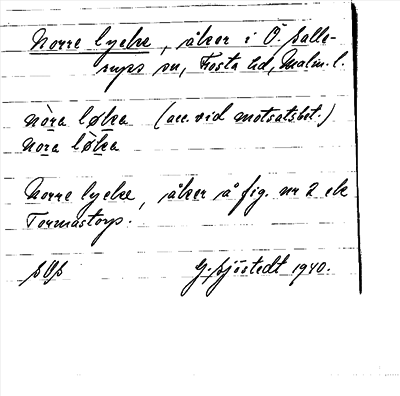 Norre lycke, åker i Ö. Salle-
rups sn, Frosta hd, Malm. l.
nòra løka (acc. vid motsatsbet.)
nora lø̀ka
Norre lycke, åker å fig. nr 2 ek
Tormastorp.
G. Sjöstedt 1940.